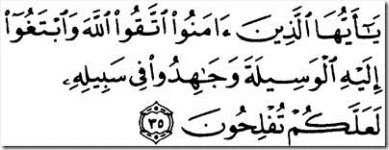 يَـٰٓأَيُّهَا ٱلَّذِينَ ءَامَنُوا۟ ٱتَّقُوا۟ ٱللَّهَ وَٱبْتَغُوٓا۟
إِلَيْهِ ٱلْوَسِيلَةَ وَجَـٰهِدُوا۟ فِى سَبِيلِهِۦ
لَعَلَّكُمْ تُفْلِحُونَ ٣٥